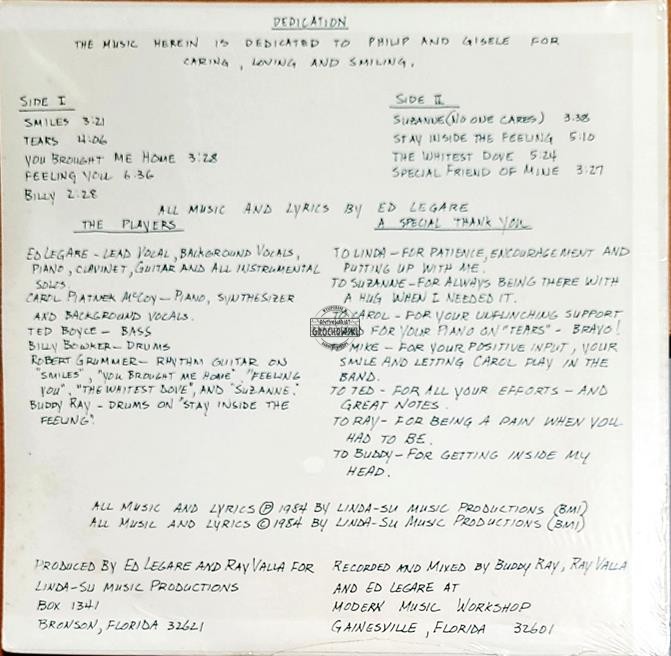 DEDICATION
THE MUSIC HEREIN IS DEDICATED TO PHILIP AND GISELE FOR
CARING, LOVING AND SMILING.
SIDE I
SMILES 3:21
TEARS 4:06
YOU BROUGHT ME HOME 3:28
FEELING YOU 6:36
BILLY 2:28
SIDE II
SUZANNE (NO ONE CARES) 3:38
STAY INSIDE THE FEELING 5:10
THE WHITEST DOVE 5:24
SPECIAL FRIEND OF MINE 3:27
ALL MUSIC AND LYRICS BY ED LEGARE
THE PLAYERS
ED LEGARE - LEAD VOCAL, BACKGROUND VOCALS,
PIANO, CLAVINET, GUITAR AND ALL INSTRUMENTAL
SOLOS.
CAROL PLATNER MCCOY - PIANO, SYNTHESIZER
AND BACKGROUND VOCALS.
TED BOYCE - BASS
BILLY BOWKER - DRUMS
ROBERT GRUMMER - RHYTHM GUITAR ON
"SMILES", "YOU BROUGHT ME HOME", "FEELING
YOU", "THE WHITEST DOVE", AND "SUZANNE."
BUDDY RAY - DRUMS ON "STAY INSIDE THE
FEELING".
A SPECIAL THANK YOU
TO LINDA - FOR PATIENCE, ENCOURAGEMENT AND
PUTTING UP WITH ME.
TO SUZANNE - FOR ALWAYS BEING THERE WITH
A HUG WHEN I NEEDED IT.
TO CAROL - FOR YOUR UNFLINCHING SUPPORT
FOR YOUR PIANO ON "TEARS" - BRAVO!
MIKE - FOR YOUR POSITIVE INPUT, YOUR
SMILE AND LETTING CAROL PLAY IN THE
BAND.
TO TED - FOR ALL YOUR EFFORTS - AND
GREAT NOTES.
TO RAY - FOR BEING A PAIN WHEN YOU
HAD TO BE.
TO BUDDY - FOR GETTING INSIDE MY
HEAD.
GROCHOWSKI
ALL MUSIC AND LYRICS ℗ 1984 BY LINDA-SU MUSIC PRODUCTIONS (BMI)
ALL MUSIC AND LYRICS © 1984 BY LINDA-SU MUSIC PRODUCTIONS (BMI)
PRODUCED BY ED LEGARE AND RAY VALLA FOR
LINDA-SU MUSIC PRODUCTIONS
BOX 1341
BRONSON, FLORIDA 32621
RECORDED AND MIXED BY BUDDY RAY, RAY VALLA
AND ED LEGARE AT
MODERN MUSIC WORKSHOP
GAINESVILLE, FLORIDA 32601